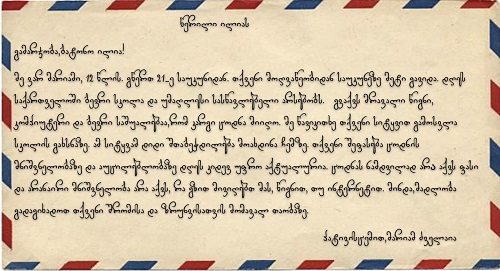 წერილი ილიას
გამარჯობა,ბატონო ილია!
მე ვარ მარიამი, 12 წლის. გწერთ 21_ე საუკუნიდან. თქვენი მოღვაწეობიდან საუკუნეზე მეტი გავიდა. დღეს
საქართველოში ბევრი სკოლა და უმაღლესი სასწავლებელი არსებობს. გვაქვს მრავალი წიგნი,
კომპიუტერი და ბევრი საშუალებაა,რომ კარგი ცოდნა მიიღო. მე წავიკითხე თქვენი სიტყვით გამოსვლა
სკოლის გახსნაზე. ამ სიტყვამ დიდი შთაბეჭდილება მოახდინა ჩემზე. თქვენი შეფასება ცოდნის
მნიშვნელობაზე და აუცილებლობაზე დღეს კიდევ უფრო აქტუალურია. ცოდნას ნამდვილად არა აქვს ფასი
და არანაირი მნიშვნელობა არა აქვს, რა გზით მივიღებთ მას, წიგნით, თუ ინტერნეტით. მინდა,მადლობა
გადაგიხადოთ თქვენი შრომისა და ზრუნვისათვის მომავალ თაობაზე.
პატივისცემით,მარიამ ძველაია